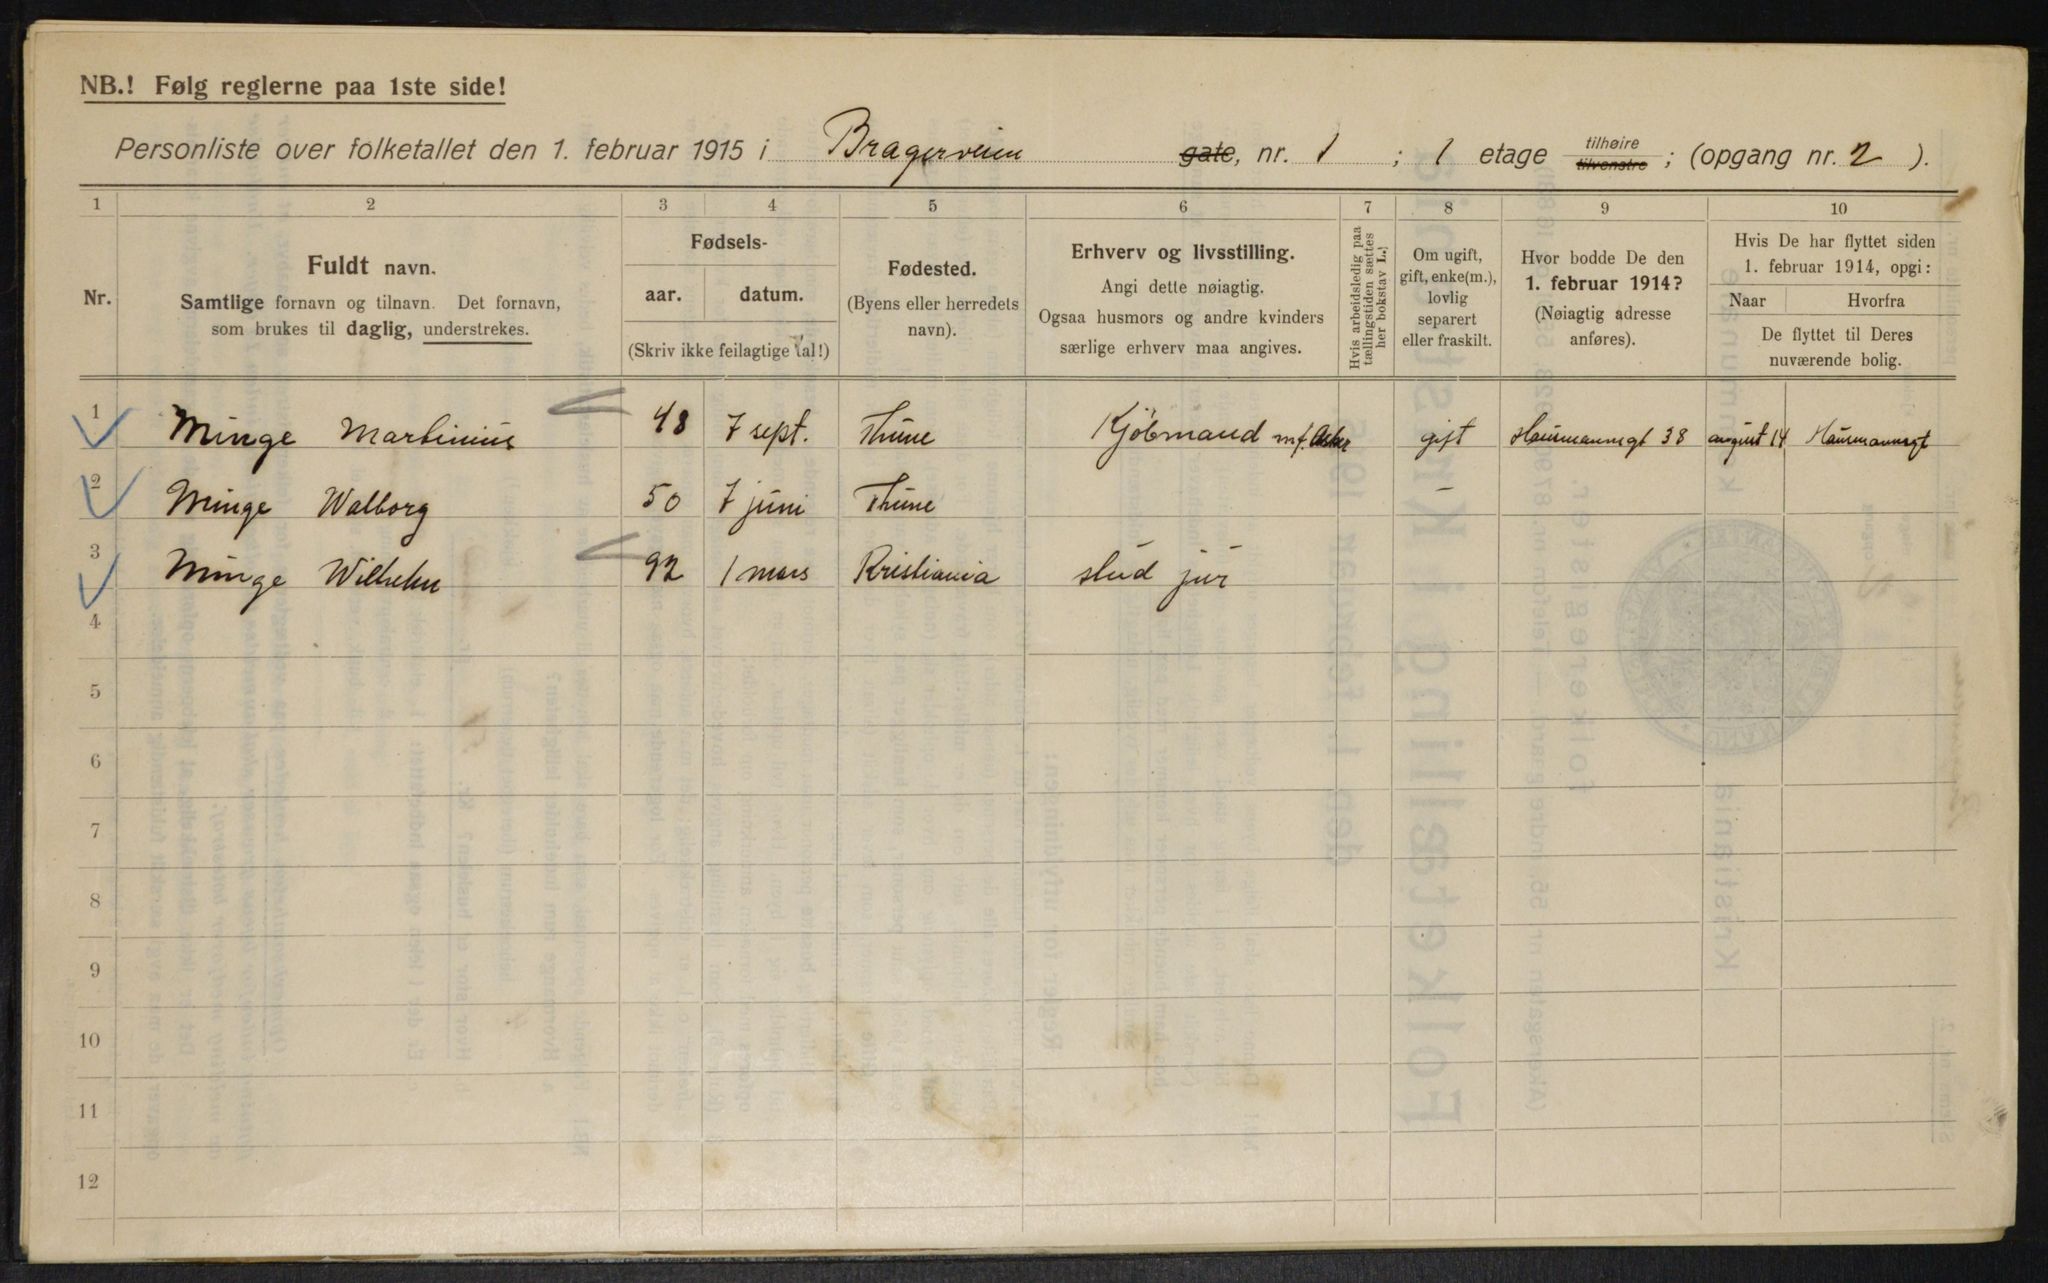 NB.! Følg reglerne paa 1ste side!
Personliste over folketallet den 1. februar 1915 i Bragerveien gate, nr. 1 ; 1 etage tilhøire tilvenstre ; (opgang nr. 2 ).
1 2 3 4 5 6 7 8 9 10
Nr.
Fuldt navn.
Samtlige fornavn og tilnavn. Det fornavn,
som brukes til daglig, understrekes.
Fødsels-
aar. datum.
(Skriv ikke feilagtige tal!)
Fødested.
(Byens eller herredets
navn).
Erhverv og livsstilling.
Angi dette nøiagtig.
Ogsaa husmors og andre kvinders
særlige erhverv maa angives.
Hvis arbeidsledig paa
tællingstiden sættes
her bokstav L.!
Om ugift,
gift, enke(m.),
lovlig
separert
eller fraskilt.
Hvor bodde De den
1. februar 1914?
(Nøiagtig adresse
anføres).
Hvis De har flyttet siden
1. februar 1914, opgi:
Naar Hvorfra
De flyttet til Deres
nuværende bolig.
1 Minge Martinius 48 7 sept. Thune Kjøbmand gift Hausmannsgt 38 august 14 Hausmannsgt
2 Minge Walborg 50 7 juni Thune –
3 Minge Wilhelm 92 1 mars Kristiania stud jur
4
5
6
7
8
9
10
11
12